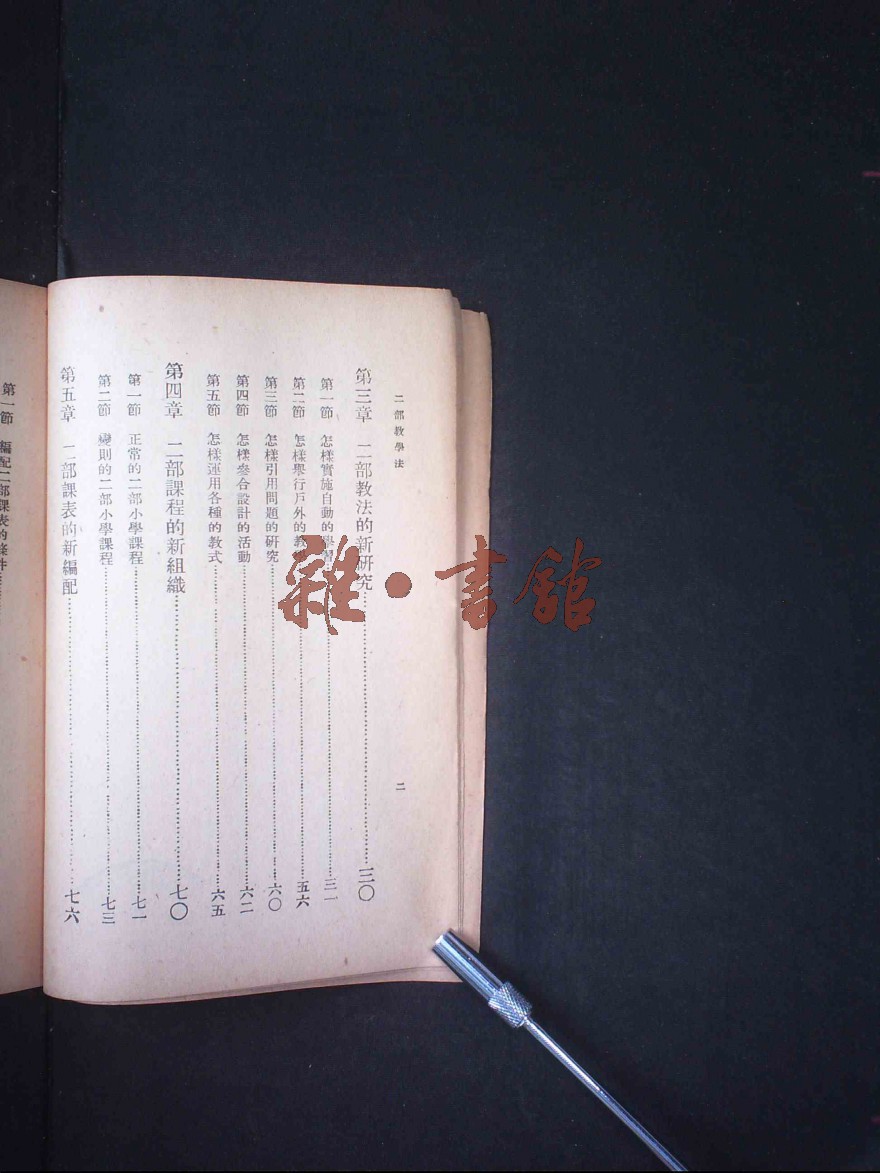 二部教學法
二
第三章 二部教法的新研究……三〇
第一節 怎樣實施自動的學習……三一
第二節 怎樣舉行戶外的教……五六
第三節 怎樣引用問題的研究……六〇
第四節 怎樣參合設計的活動……六二
第五節 怎樣運用各種的教式……六五
第四章 二部課程的新組織……七〇
第一節 正常的二部小學課程……七一
第二節 變則的二部小學課程……七三
第五章 二部課表的新編配……七六
第一節 編配二部課表的條件
雜·書館